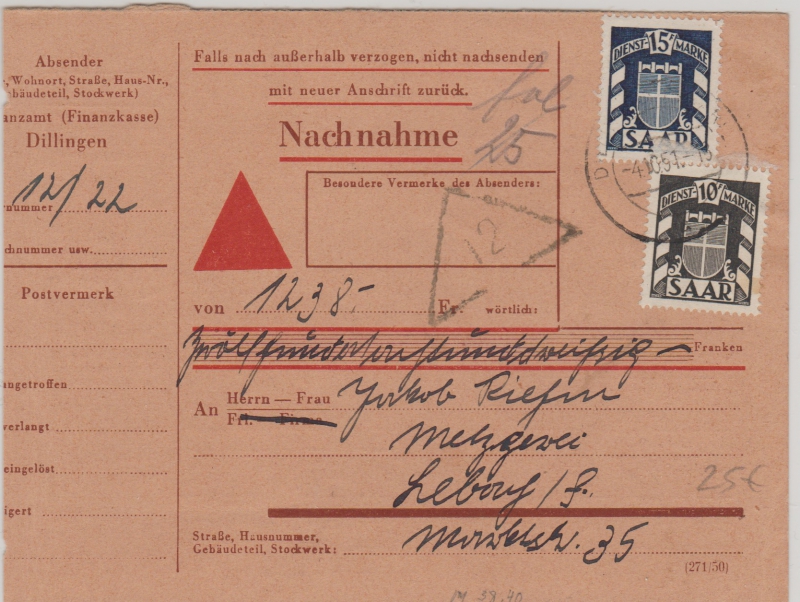 Absender
Wohnort, Straße, Haus-Nr.,
bäudeteil, Stockwerk)
anzamt (Finanzkasse)
Dillingen
12/22
nummer
chnummer usw.
Postvermerk
angetroffen
verlangt
eingelöst
igert
Falls nach außerhalb verzogen, nicht nachsenden
mit neuer Anschrift zurück.
25
Nachnahme
Besondere Vermerke des Absenders:
12
von 1238.- Fr. wörtlich:
Zwölfhundertachtunddreißig — Franken
An Herrn — Frau Jakob
Frl. — Firma
Metzgerei
Lebach/S.
Marktstr. 35
Straße, Hausnummer,
Gebäudeteil, Stockwerk:
(271/50)
DIENST- 15F MARKE
SAAR
-4.10.51.
DIENST- 10F MARKE
SAAR
25€
M 38.40